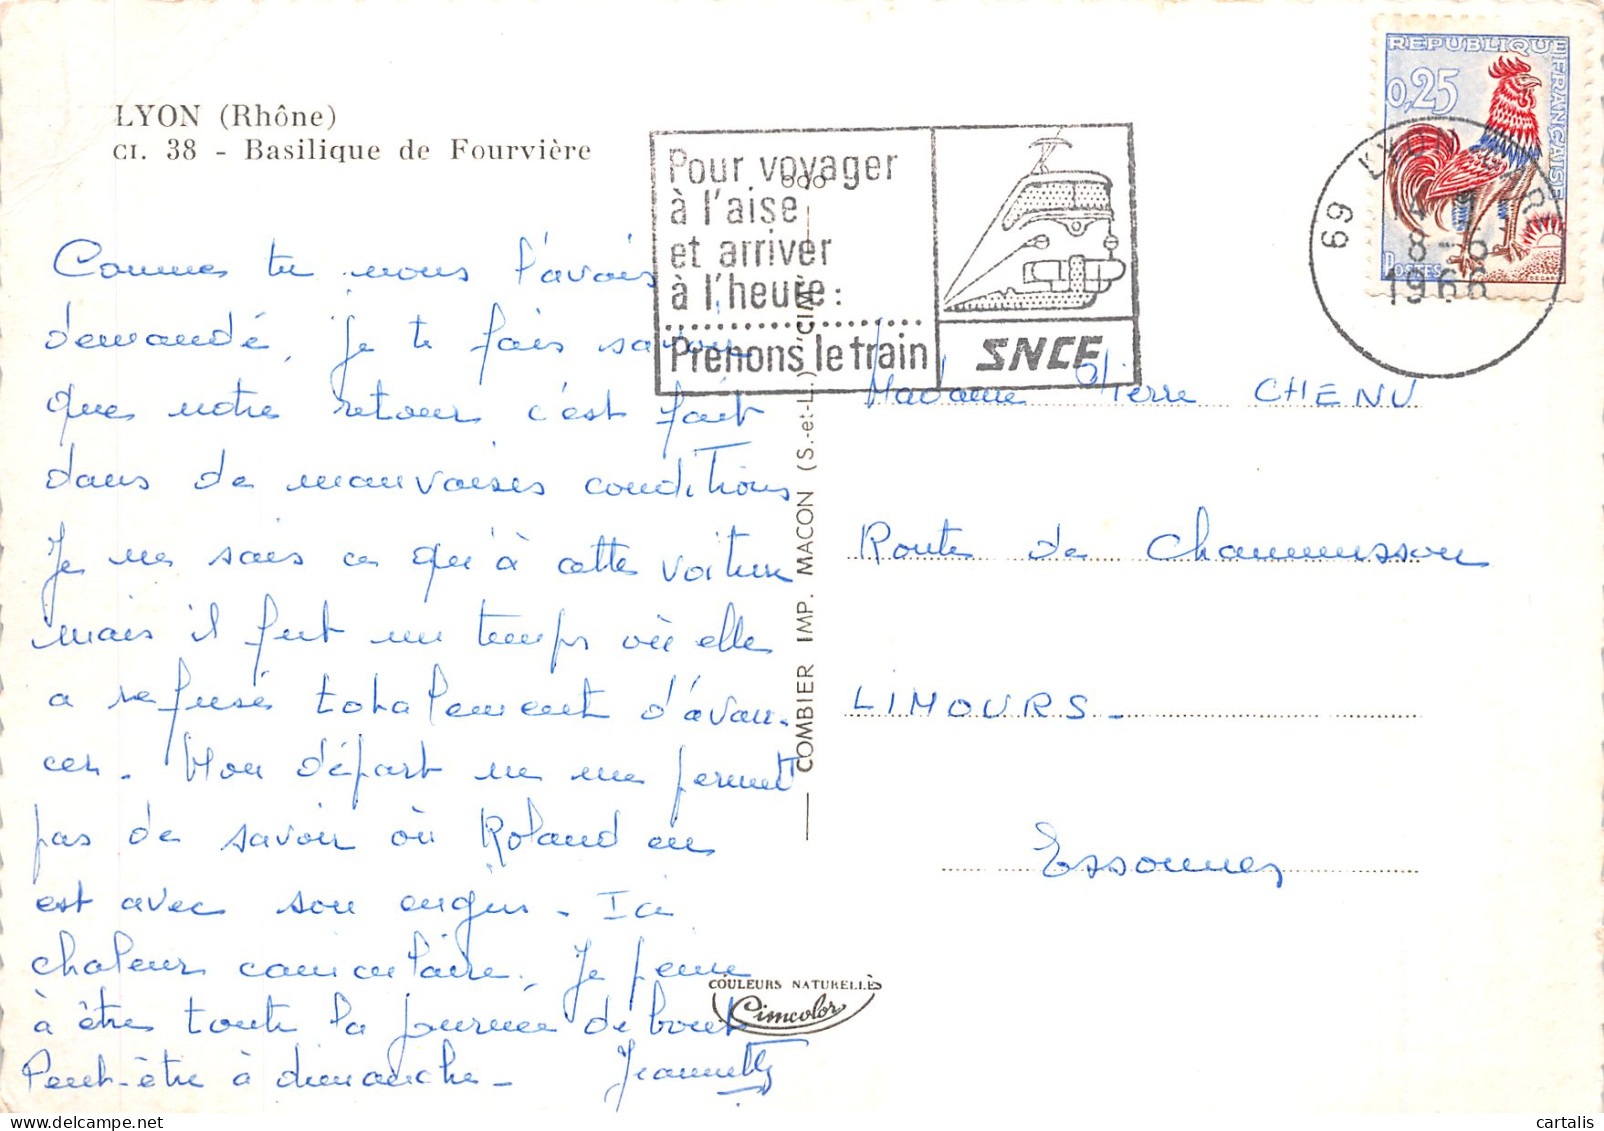 LYON (Rhône)
CI. 38 - Basilique de Fourvière
Pour voyager
à l'aise
et arriver
à l'heure :
Prenons le train
SNCF
REPUBLIQUE FRANÇAISE
0,25
POSTES
69 LYON GARE
8-6
1966
Comme tu nous l'avais
demandé, je te fais savoir
que notre retour c'est fait
dans de mauvaises conditions
Je ne sais ce qu'à cette voiture
mais il fut un temps où elle
a refusé totalement d'avan-
cer. Mon départ ne me permet
pas de savoir où Roland en
est avec son engin. Ici
chaleur caniculaire. Je pense
à être toute la journée debout
Peut-être à dimanche - Jeannette
COMBIER IMP. MACON (S.-et-L.) "CIM"
COULEURS NATURELLES
Cimcolor
Madame Pierre CHENU
Route de Chaumusson
LIMOURS -
Essonnes
cartalis